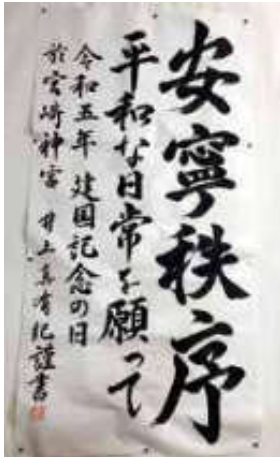 安寧秩序
平和な日常を願って
令和五年 建国記念の日
於宮崎神宮 井上真有紀謹書